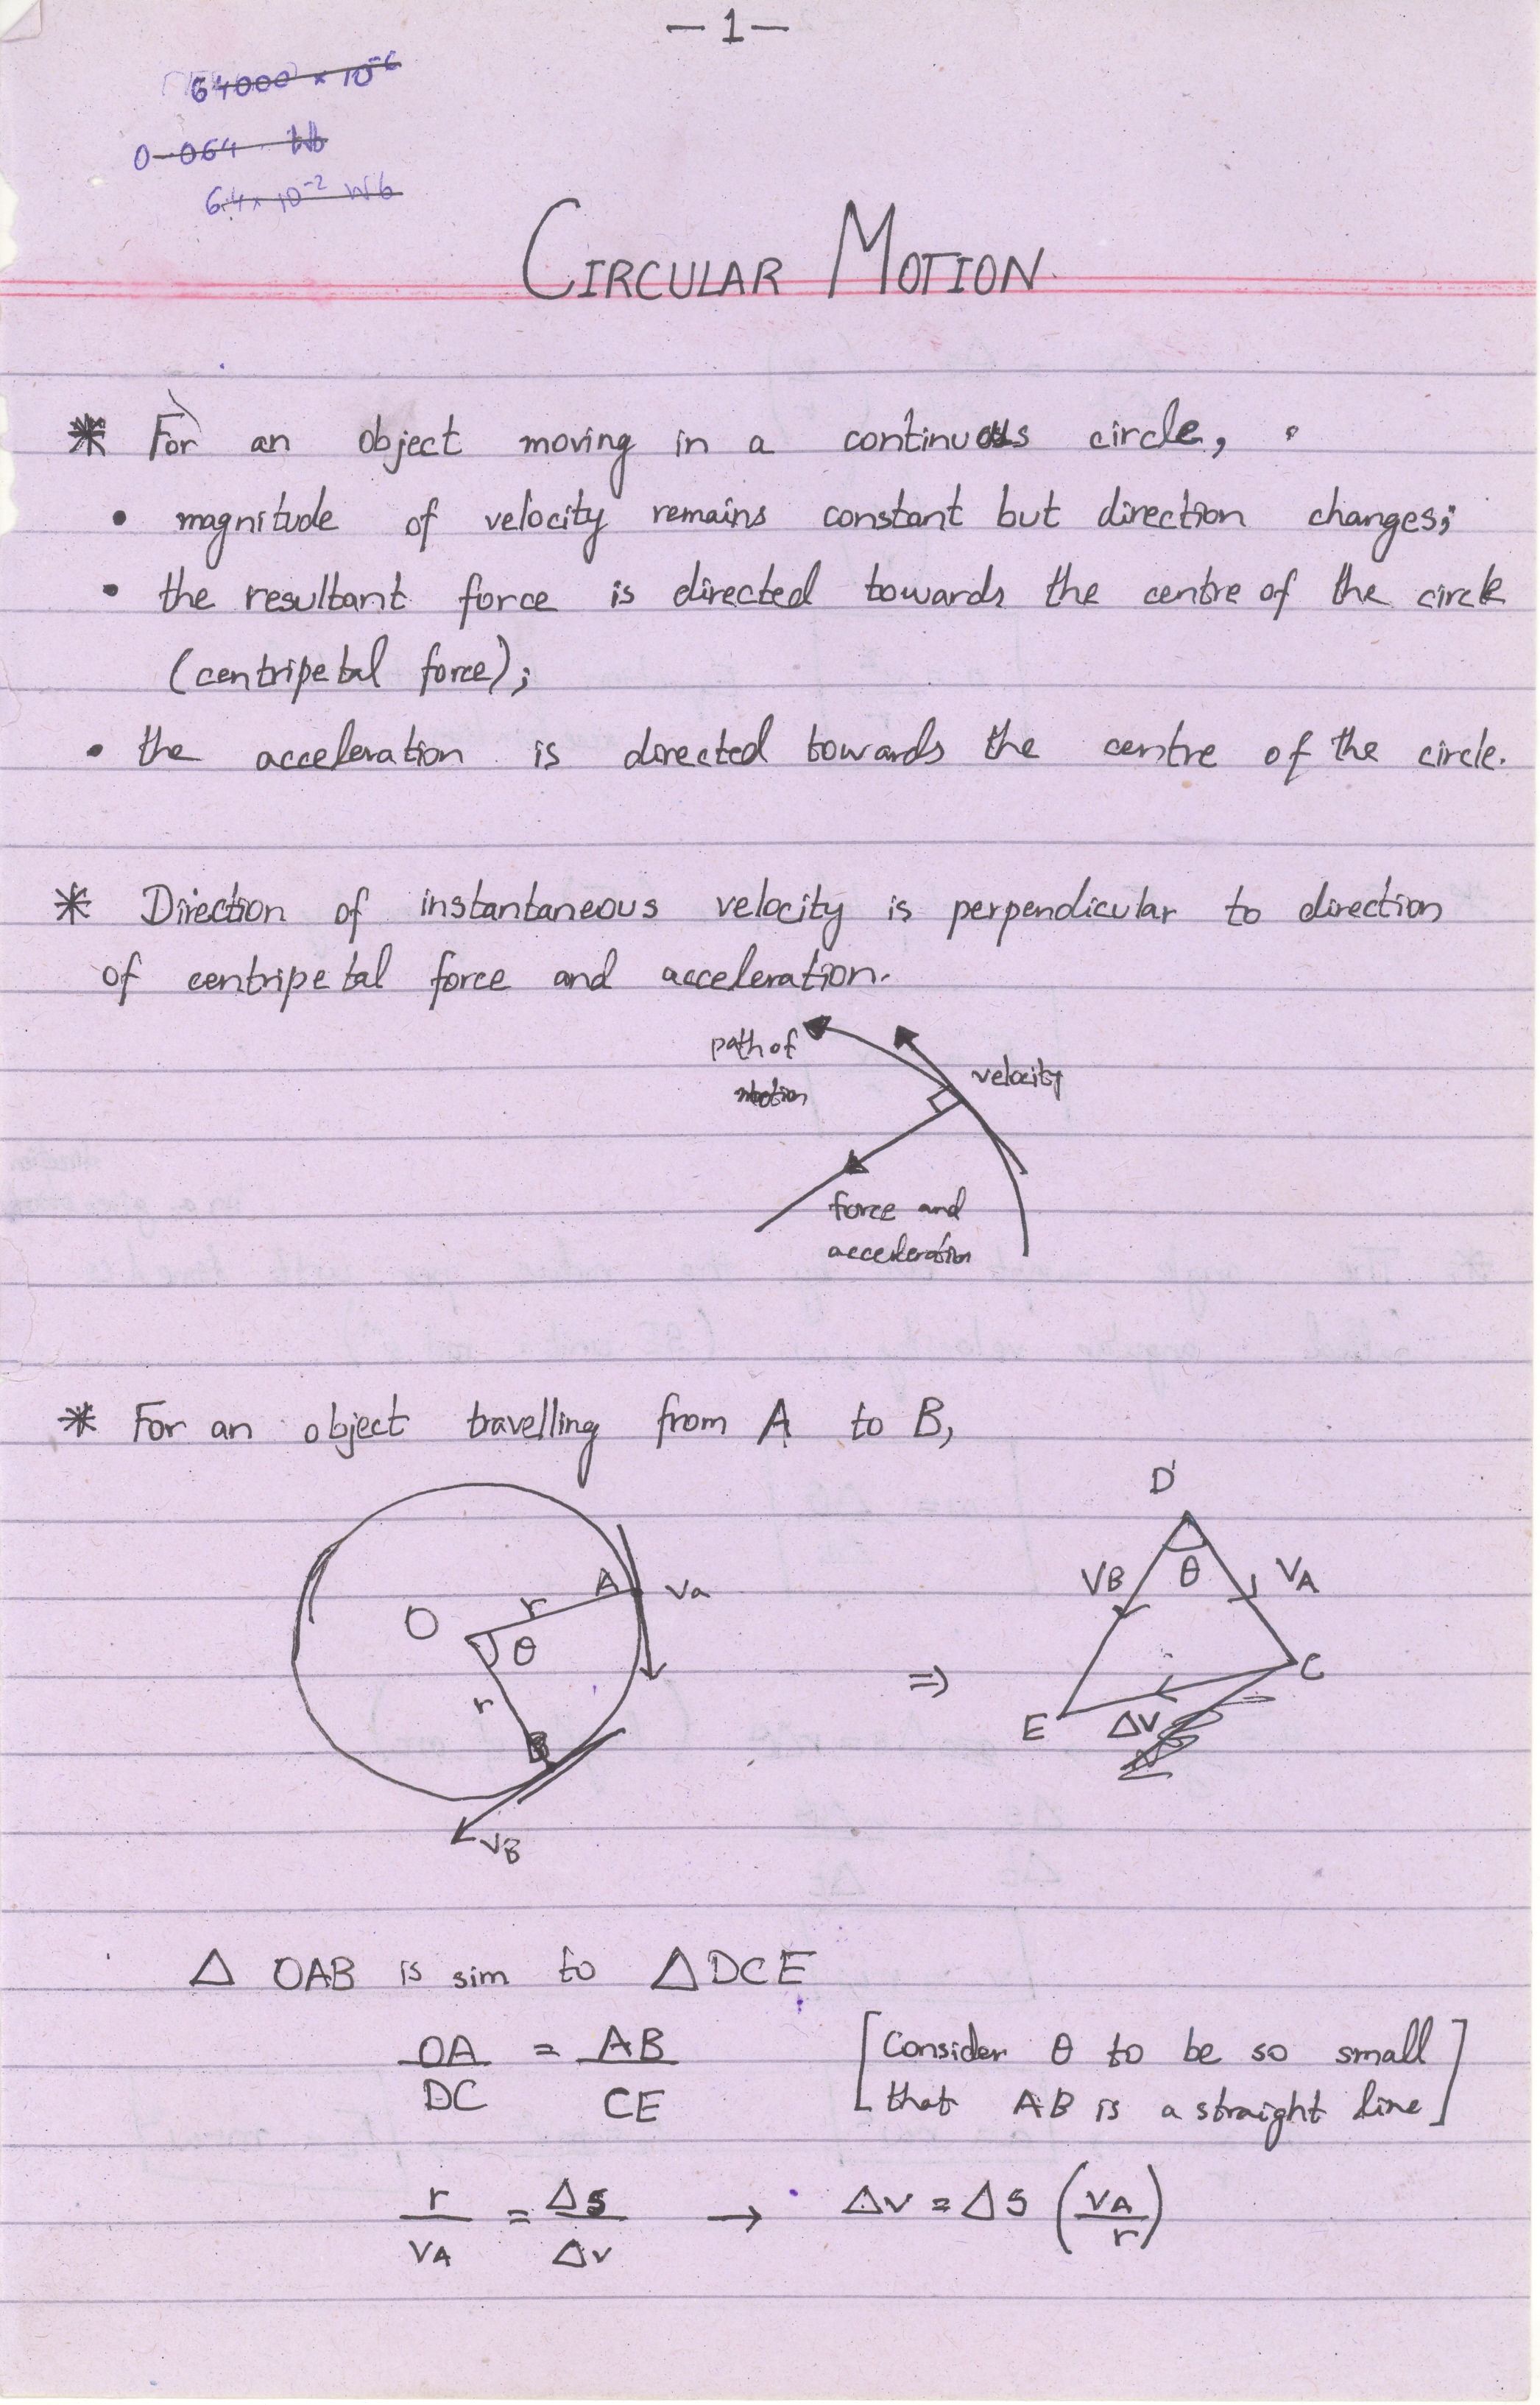 — 1 —
64000 × 10⁻⁶
0.064 Wb
6.4 × 10⁻² Wb
CIRCULAR MOTION
* For an object moving in a continuous circle,
• magnitude of velocity remains constant but direction changes;
• the resultant force is directed towards the centre of the circle
(centripetal force);
• the acceleration is directed towards the centre of the circle.
* Direction of instantaneous velocity is perpendicular to direction
of centripetal force and acceleration.
path of
motion
velocity
force and
acceleration
* For an object travelling from A to B,
O r θ A va
r B
vB
⇒
D
VB θ VA
E Δv C
Δ OAB is sim to ΔDCE
OA/DC = AB/CE [Consider θ to be so small
that AB is a straight line]
r/vA = Δs/Δv → Δv = Δs (vA/r)